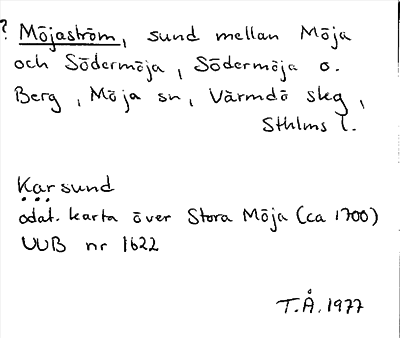 ? Möjaström, sund mellan Möja
och Södermöja, Södermöja o.
Berg, Möja sn, Värmdö skg,
Sthlms l.
Karsund
odat. karta över Stora Möja (ca 1700)
UUB nr 1622
T.Å. 1977